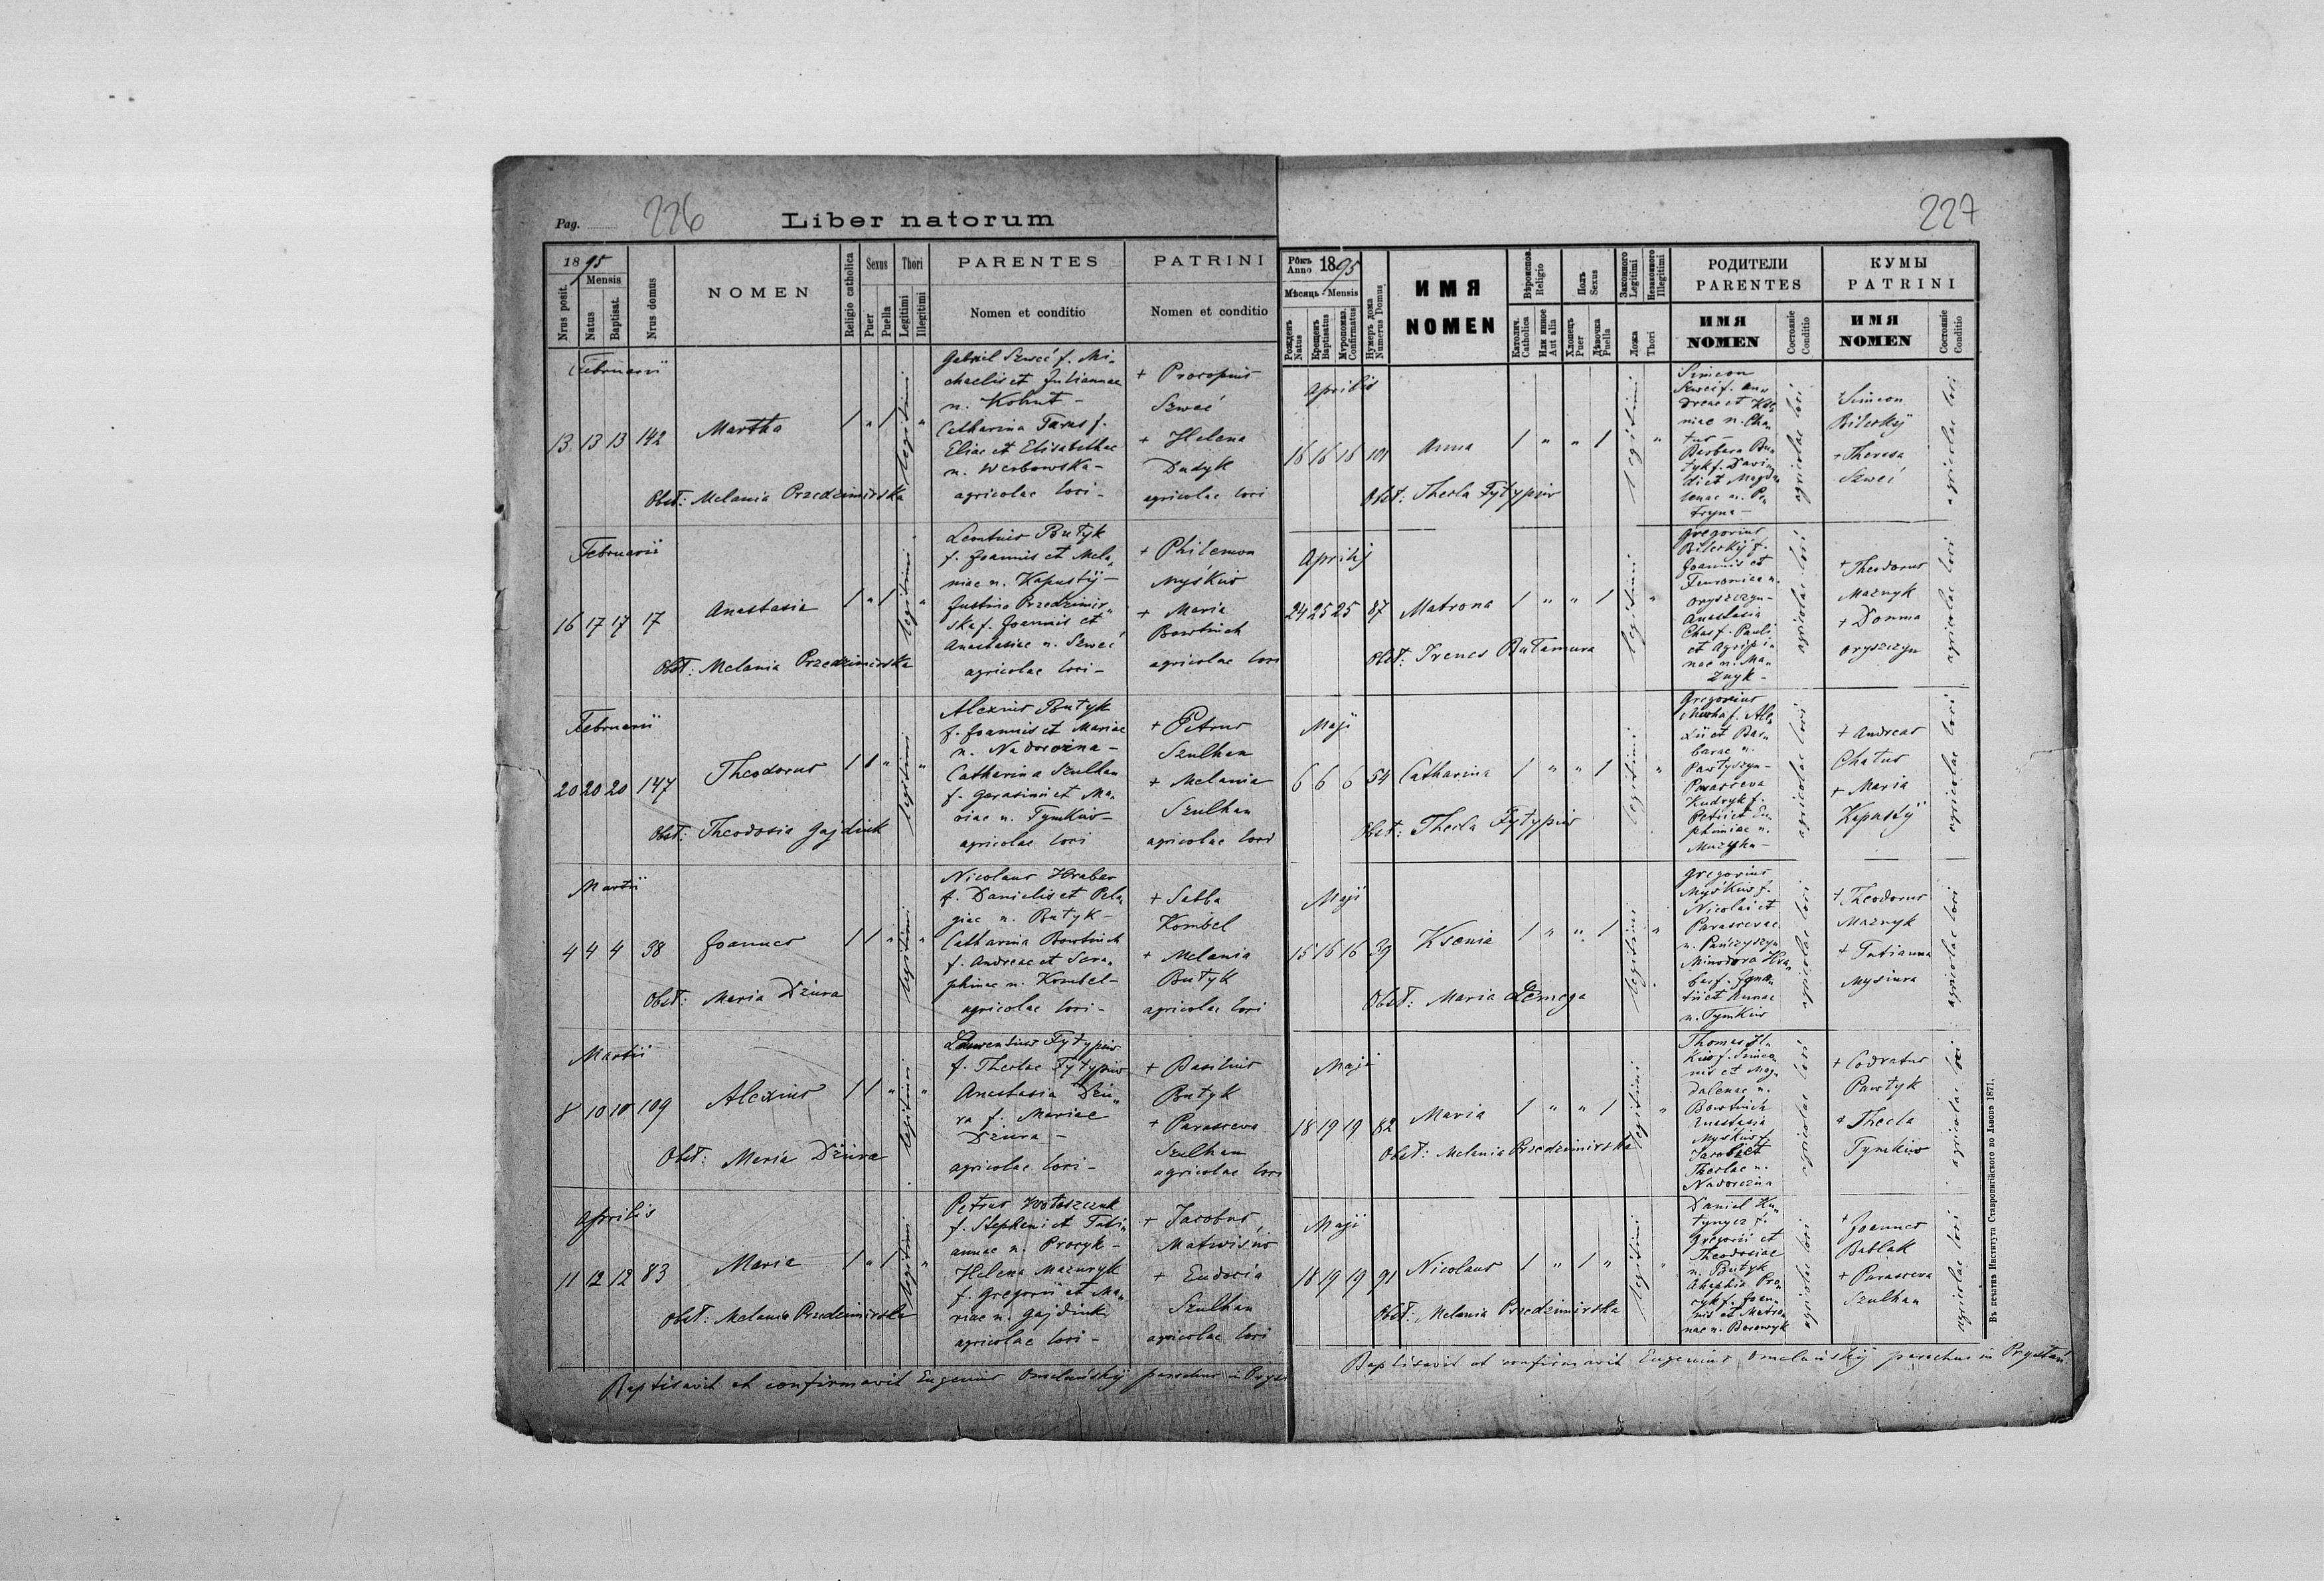 Pag. 226
Liber natorum
1895
Mensis
Nrus posit.
Natus
Baptisat.
Nrus domus
NOMEN
Religio catholica
Sexus
Puer
Puella
Thori
Legitimi
Illegitimi
PARENTES
Nomen et conditio
PATRINI
Nomen et conditio
Februarii
13 13 13 142 Martha 1 " 1 legitimi "
Obst: Melania Przedzimirska
Gabriel Szweć f. Mi„
chaelis et Juliannae
n. Kohut –
Catharina Taras f.
Eliae et Elisabethae
n. Werbowska –
agricolae loci –
+ Procopius
Szweć
+ Helena
Dudyk
agricolae loci
Februarii
16 17 17 17 Anastasia 1 " 1 legitimi "
Obst: Melania Przedzimirska
Leontius Butyk
f. Joannis et Mela„
niae n. Kapustij –
Justina Przedzimir„
ska f. Joannis et
Anastasiae n. Szweć
agricolae loci –
+ Philemon
Myśkiw
+ Maria
Bowtrich
agricolae loci
Februarii
20 20 20 147 Theodorus 1 1 " legitimi "
Obst: Theodosia Gajdiuk
Alexius Butyk
f. Joannis et Mariae
n. Nadorożna –
Catharina Szulhan
f. Gerasimi et Ma„
riae n. Tymkiw –
agricolae loci
+ Petrus
Szulhan
+ Melania
Szulhan
agricolae loci
Martii
4 4 4 38 Joannes 1 1 " legitimi "
Obst: Maria Dziura
Nicolaus Hraber
f. Danielis et Pela„
giae n. Butyk –
Catharina Bowtrich
f. Andreae et Sera„
phinae n. Kombel –
agricolae loci –
+ Sabba
Kombel
+ Melania
Butyk
agricolae loci
Martii
8 10 10 109 Alexius 1 1 " legitimi "
Obst: Maria Dziura
Laurentius Fytypiw
f. Theclae Fytypiw
Anastasia Dziu„
ra f. Mariae
Dziura –
agricolae loci –
+ Basilius
Butyk
+ Parasceva
Szulhan
agricolae loci
Aprilis
11 12 12 83 Maria 1 " 1 legitimi "
Obst: Melania Przedzimirska
Petrus Wołoszczuk
f. Stephani et Tati„
annae n. Procyk –
Helena Mazuryk
f. Gregorii et Ma„
riae n. Gajdiuk
agricolae loci –
+ Jacobus
Matwisiw
+ Eudocia
Szulhan
agricolae loci
Baptisavit et confirmavit Eugenius Omelański parochus in
227
Рôкъ
Anno 1895
Мѣсяць - Mensis
Рожденъ
Natus
Крещенъ
Baptisatus
Мѵропомаз.
Confirmatus
Нумеръ дома
Numerus Domus
ИМЯ
NOMEN
Вѣроиспов.
Religio
Католич.
Catholica
Или иное
Aut alia
Полъ
Sexus
Хлопецъ
Puer
Дѣвочка
Puella
Законного
Legitimi
Незаконного
Illegitimi
Ложа
Thori
РОДИТЕЛИ
PARENTES
ИМЯ
NOMEN
Состояніе
Conditio
КУМЫ
PATRINI
ИМЯ
NOMEN
Состояніе
Conditio
Aprilis
16 16 16 101 Anna 1 " " 1 legitimi "
Obst: Thecla Fytypiw
Simeon
Szweć f. An„
dreae et Kse„
niae n. Cha„
tus –
Barbara Bu„
tyk f. Davi„
di et Magda„
lenae n. Pe„
tryna –
agricolae loci
+ Simeon
Bilerskij
+ Theresa
Szweć
agricolae loci
Aprilis
24 25 25 87 Matrona 1 " " 1 legitimi "
Obst: Irenes Batamura
Gregorius
Bilerskij f.
Joannis et
Fewroniae n.
Oryszczyn –
Anastasia
Chas f. Pauli
et Agripi„
nae n. Ma„
znyk –
agricolae loci
+ Theodorus
Maznyk
+ Domna
Oryszczyn
agricolae loci
Maji
6 6 6 54 Catharina 1 " " 1 legitimi "
Obst: Thecla Fytypiw
Gregorius
Mucha f. Ale„
xii et Bar„
barae n.
Pawtyszyn –
Parasceva
Kudryk f.
Petri et Eu„
phimiae n.
Muzyka –
agricolae loci
+ Andreas
Chatus
+ Maria
Kapustij
agricolae loci
Maji
15 16 16 39 Ksenia 1 " " 1 legitimi "
Obst: Maria Lemega
Gregorius
Myśkiw f.
Nicolai et
Parascevae
n. Pańczyszyn
Minodora Hra„
ber f. Igna„
tii et Annae
n. Tymkiw
agricolae loci
+ Theodorus
Maznyk
+ Tatianna
Mysiura
agricolae loci
Maji
18 19 19 82 Maria 1 " " 1 legitimi "
Obst: Melania Przedzimirska
Thomas
f. Simeo„
nis et Mag„
dalenae n.
Bowtrich
Anastasia
Myśkiw f.
Jacobi et
Theclae n.
Nadorożna
agricolae loci
+ Codratus
Pawtyk
+ Thecla
Tymkiw
agricolae loci
Maji
18 19 19 91 Nicolaus 1 " 1 " legitimi "
Obst: Melania Przedzimirska
Daniel Ku„
tynycz f.
Gregorii et
Theodosiae
n. Butyk
Ahaphia Pro„
cyk f. Joan„
nis et Matro„
nae n. Borowyk
agricolae loci
+ Joannes
Bablak
+ Parasceva
Szulhan
agricolae loci
Baptisavit et confirmavit Eugenius Omelański parochus in Prystań
Въ печатнѣ Института Ставропигійского во Львовѣ 1871.